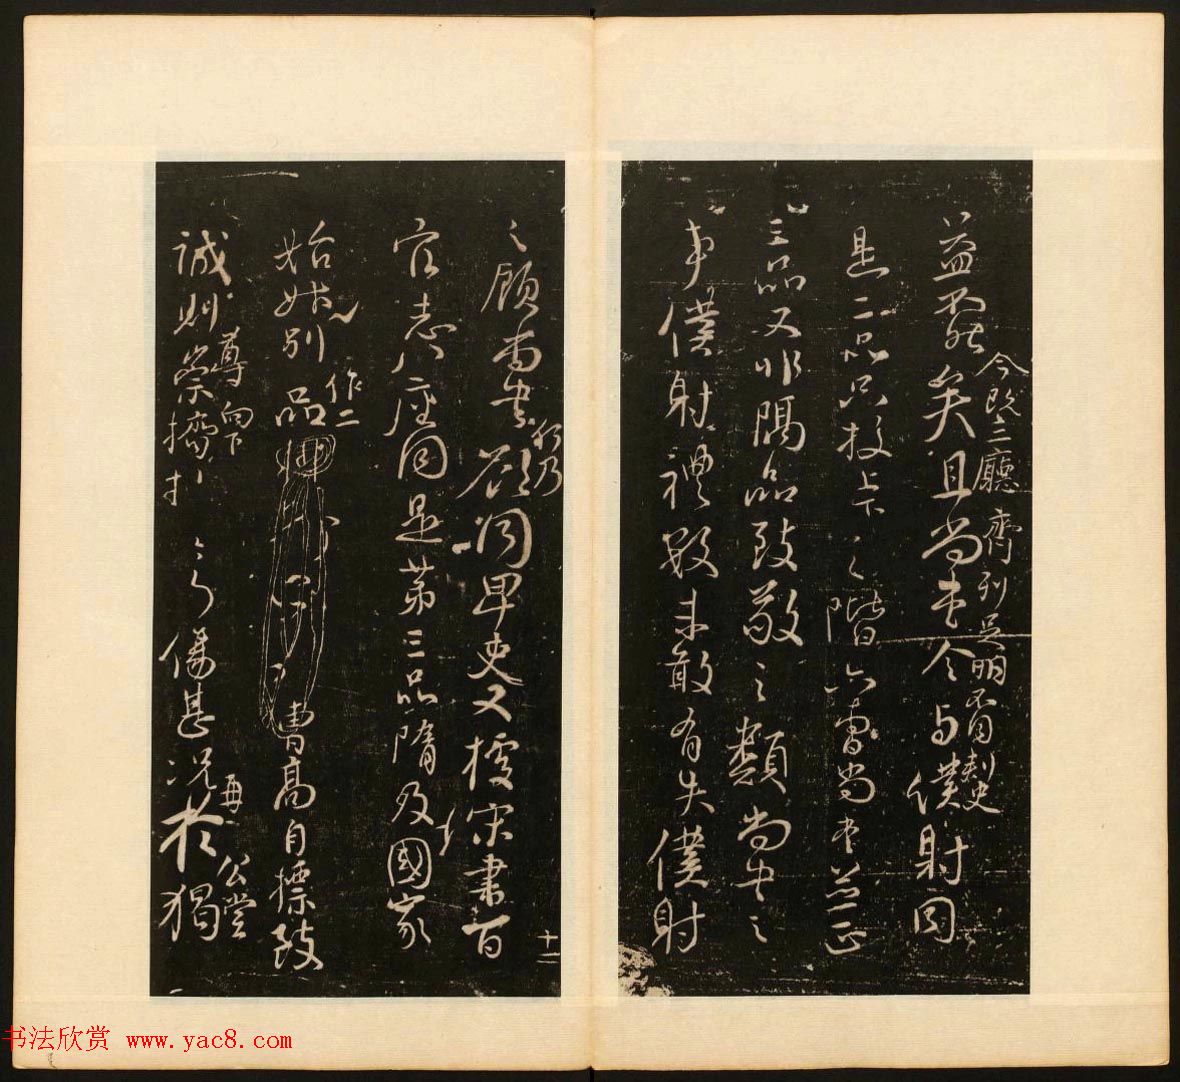 益不然矣且尚書令与僕射同
今既三廳齊列足明不同刺史
是二品只校上下之階六曹尚書並正
三品又非隔品致敬之類尚書之
事僕射禮數未敢有失僕射
之顧尚書何乃欲同卑吏又據宋書百
十二
官志八座同是第三品隋及國家
始升別作二品曹高自標致
誠則尊崇向下擠排傷甚況再於公堂猲
书法欣赏 www.yac8.com